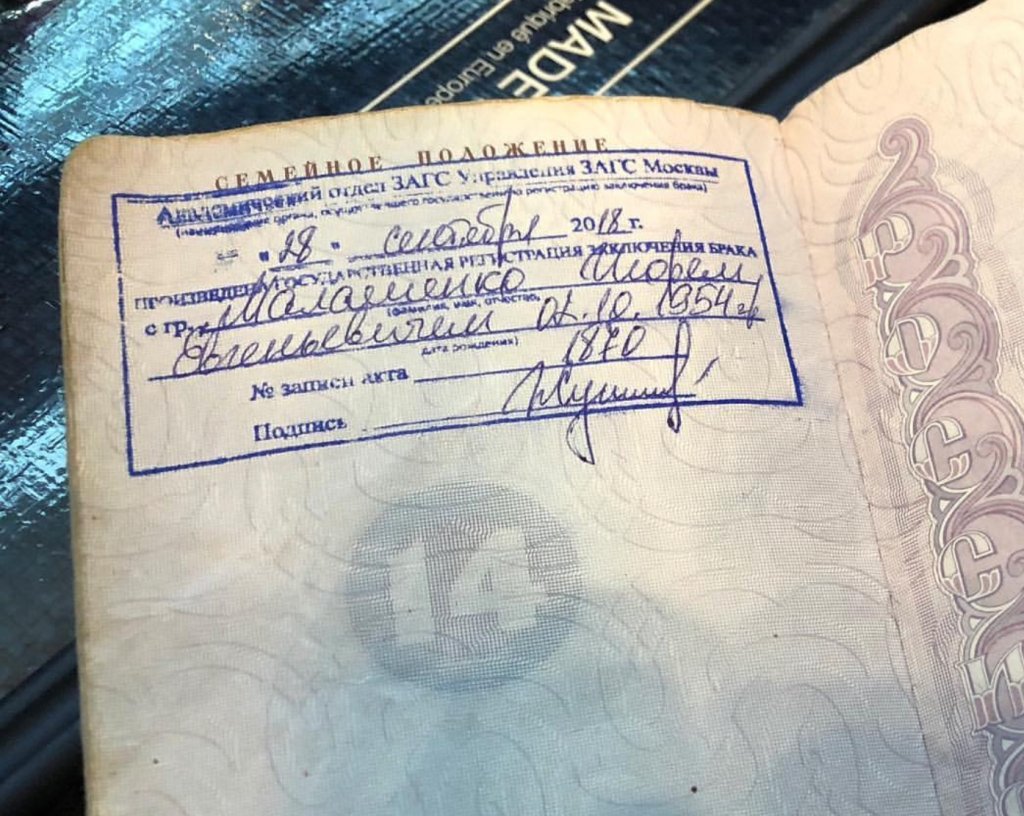 MADE
Fabriqué en Europe
СЕМЕЙНОЕ ПОЛОЖЕНИЕ
Академический отдел ЗАГС Управления ЗАГС Москвы
(наименование органа, осуществившего государственную регистрацию заключения брака)
"28" сентября 2018 г.
ПРОИЗВЕДЕНА ГОСУДАРСТВЕННАЯ РЕГИСТРАЦИЯ ЗАКЛЮЧЕНИЯ БРАКА
с гр. Маламенко Игорем
(фамилия, имя, отчество,
Евгеньевичем 02.10.1954 гр
дата рождения)
№ записи акта 1870
Подпись
14
РОССИ